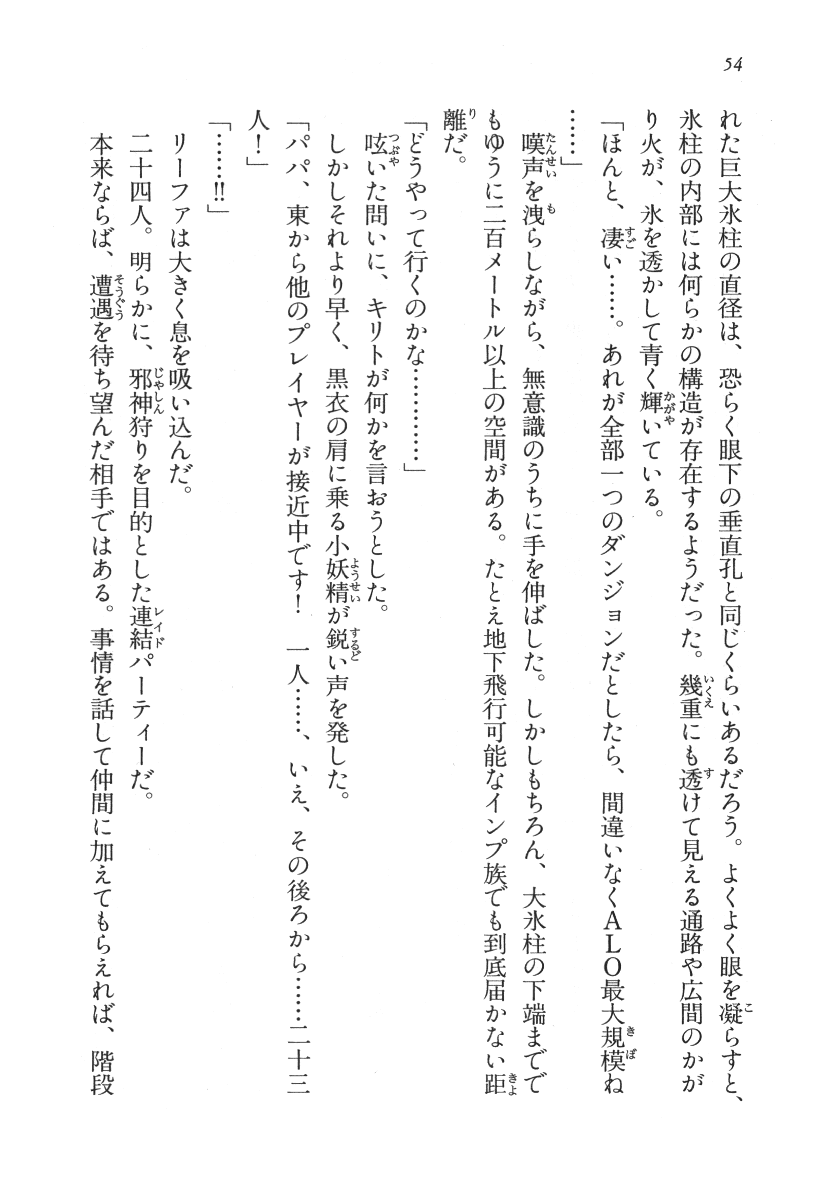 54
れた巨大氷柱の直径は、恐らく眼下の垂直孔と同じくらいあるだろう。よくよく眼を凝らすと、
氷柱の内部には何らかの構造が存在するようだった。幾重にも透けて見える通路や広間のかが
り火が、氷を透かして青く輝いている。
「ほんと、凄い……。あれが全部一つのダンジョンだとしたら、間違いなくＡＬＯ最大規模ね
……」
嘆声を洩らしながら、無意識のうちに手を伸ばした。しかしもちろん、大氷柱の下端までで
もゆうに二百メートル以上の空間がある。たとえ地下飛行可能なインプ族でも到底届かない距
離だ。
「どうやって行くのかな…………」
呟いた問いに、キリトが何かを言おうとした。
しかしそれより早く、黒衣の肩に乗る小妖精が鋭い声を発した。
「パパ、東から他のプレイヤーが接近中です！　一人……、いえ、その後ろから……二十三
人！」
「……!!」
リーファは大きく息を吸い込んだ。
二十四人。明らかに、邪神狩りを目的とした連結パーティーだ。
本来ならば、遭遇を待ち望んだ相手ではある。事情を話して仲間に加えてもらえれば、階段